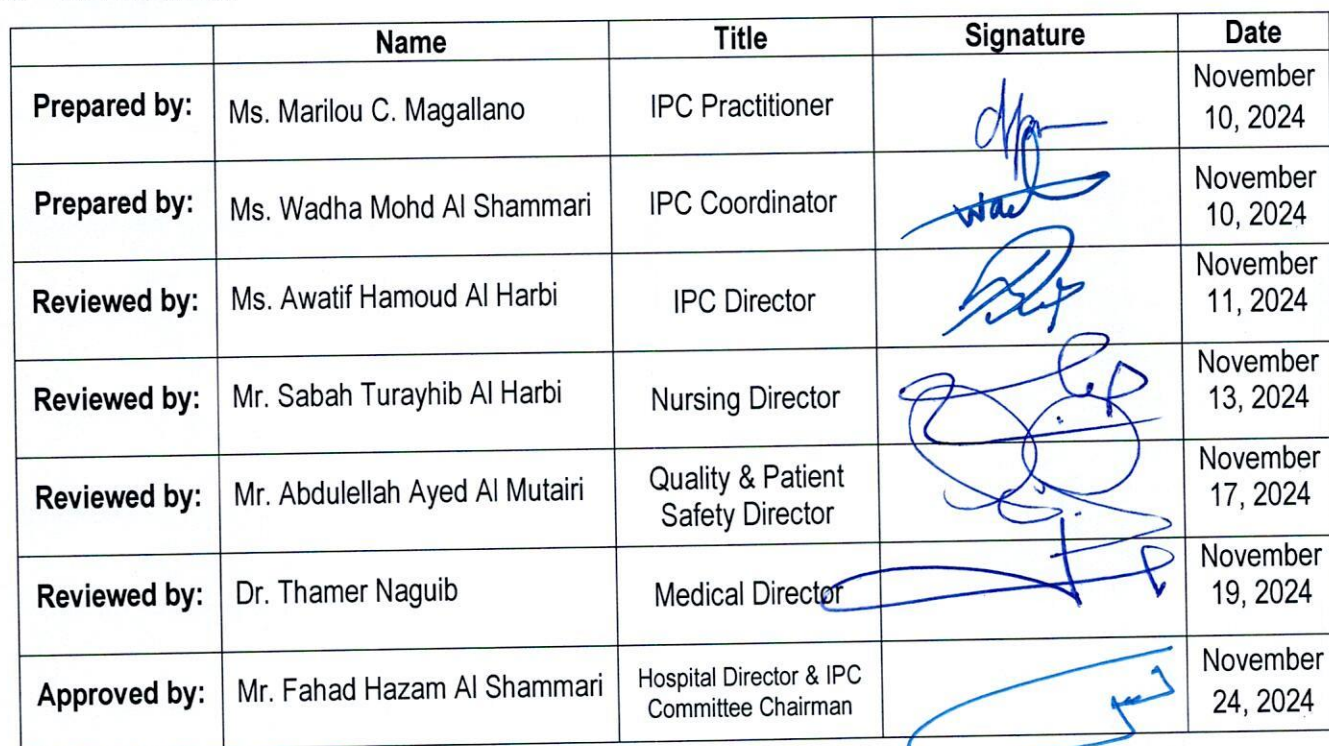 Name Title Signature Date
Prepared by: Ms. Marilou C. Magallano IPC Practitioner November 10, 2024
Prepared by: Ms. Wadha Mohd Al Shammari IPC Coordinator November 10, 2024
Reviewed by: Ms. Awatif Hamoud Al Harbi IPC Director November 11, 2024
Reviewed by: Mr. Sabah Turayhib Al Harbi Nursing Director November 13, 2024
Reviewed by: Mr. Abdulellah Ayed Al Mutairi Quality & Patient Safety Director November 17, 2024
Reviewed by: Dr. Thamer Naguib Medical Director November 19, 2024
Approved by: Mr. Fahad Hazam Al Shammari Hospital Director & IPC Committee Chairman November 24, 2024